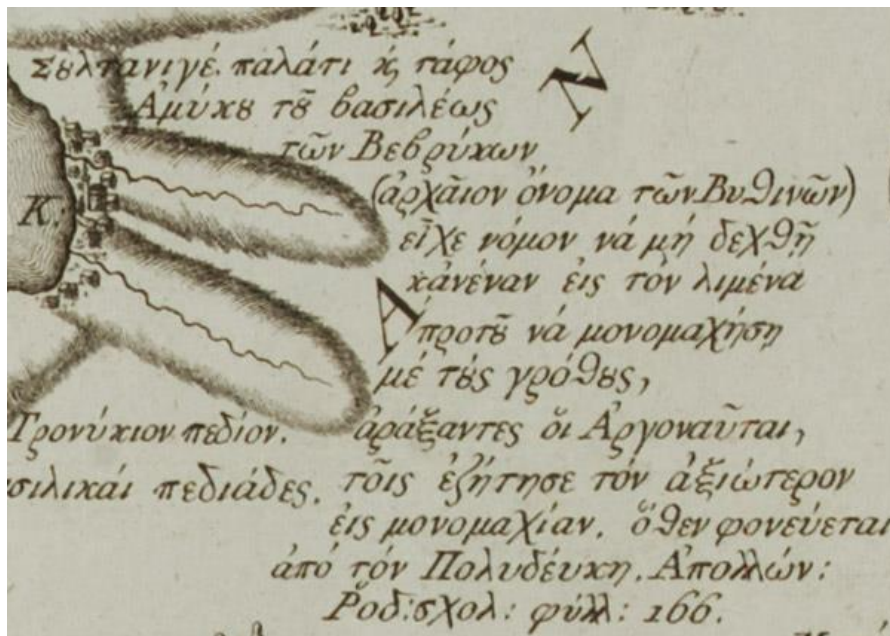 Σȣλτανιγέ. παλάτι ϗ τάφος
Ἀμύκȣ τȣ͂ βασιλέως
τῶν Βεβρύκων
(ἀρχᾶιον ὄνομα τῶν Βυθινῶν)
εἶχε νόμον νά μή δεχθῇ
κἀνέναν εἰς τόν λιμένα
προτȣ͂ νά μονομαχήσῃ
μέ τȣ́ς γρόθȣς,
ἀράξαντες ὅι Ἀργοναῦται,
τοῖς ἐζήτησε τόν ἀξιώτερον
εἰς μονομαχίαν. ὅθεν φονεύεται
ἀπό τόν Πολυδέυκη. Ἀπολλών:
Ῥοδ: σχολ: φύλλ: 166.
Γρονύκιον πεδίον.
σιλικάι πεδιάδες.
Κ:
Ν
Α